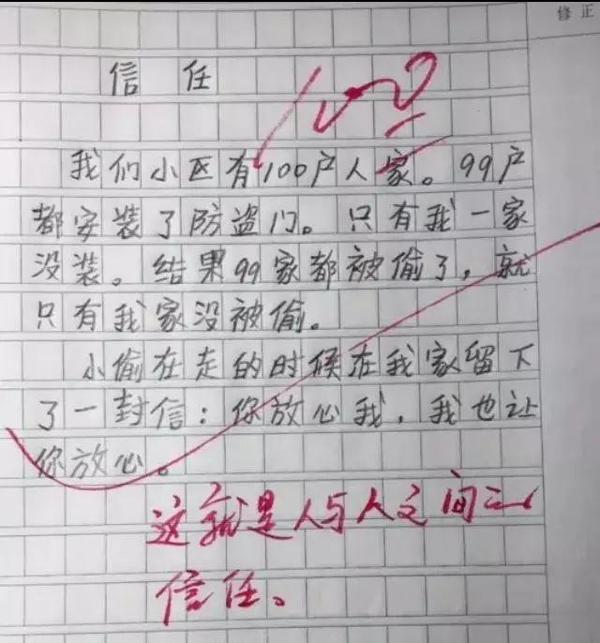 修正
信任
100
我们小区有100户人家。99户
都安装了防盗门。只有我一家
没装。结果99家都被偷了，就
只有我家没被偷。
小偷在走的时候在我家留下
了一封信：你放心我，我也让
你放心。
这就是人与人之间之
信任。